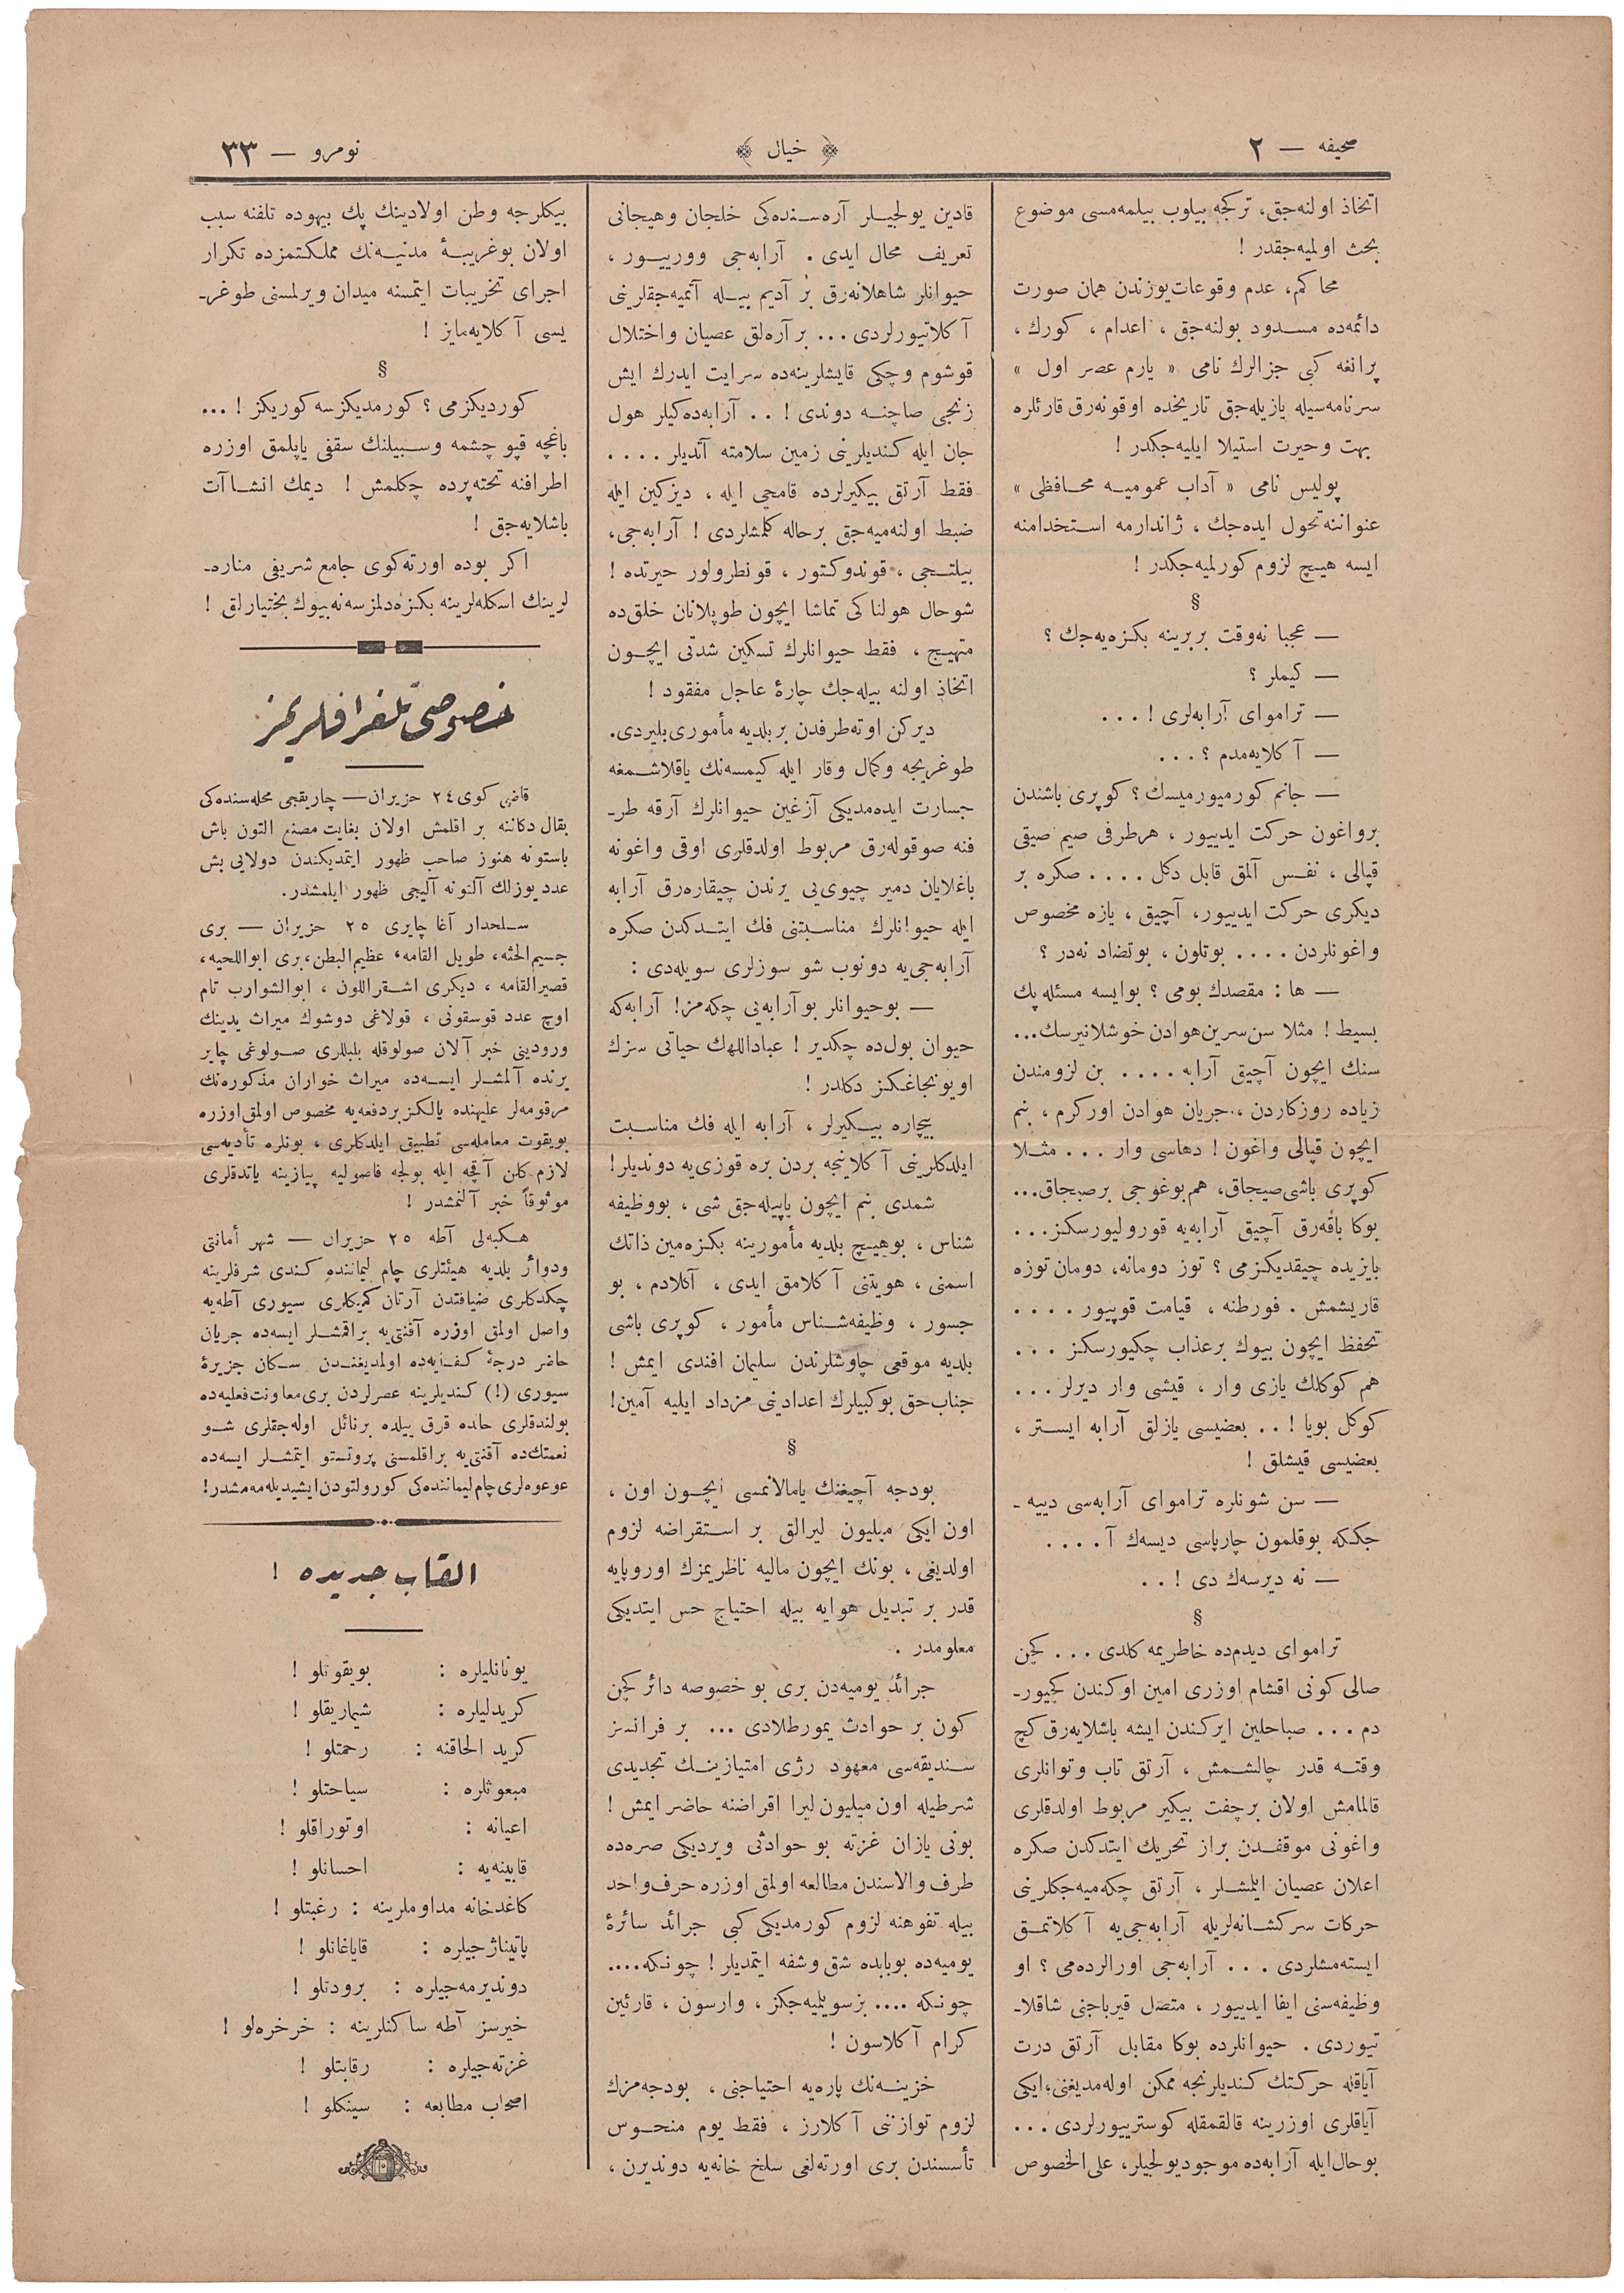 صحیفه — ٢
﴿ خیال ﴾
نومرو — ٣٣
اتخاذ اولنه‌جق، ترکجه بیلوب بیلمه‌مسی موضوع
بحث اولمیه‌جقدر !
محاکم، عدم وقوعات یوزندن همان صورت
دائمه‌ده مسدود بولنه‌جق ، اعدام ، کورك ،
پرانغه کبی جزالرك نامی « یارم عصر اول »
سرنامه‌سیله یازیله‌جق تاریخده اوقونه‌رق قارئلره
بهت وحیرت استیلا ایلیه‌جکدر !
پولیس نامی « آداب عمومیه محافظی »
عنواننه تحول ایده‌جك ، ژاندارمه استخدامنه
ایسه هیچ لزوم کورلمیه‌جکدر !
§
— عجبا نه‌وقت بربرینه بکزه‌یه‌جك ؟
— کیملر ؟
— تراموای آرابه‌لری ! . . .
— آکلایه‌مدم ؟ . . .
— جانم کورمیورمیسك ؟ کوپری باشندن
برواغون حرکت ایدییور ، هرطرفی صیم صیقی
قپالی ، نفس آلمق قابل دکل . . . . صکره بر
دیکری حرکت ایدییور، آچیق ، یازه مخصوص
واغونلردن . . . . بوتلون ، بوتضاد نه‌در ؟
— ها : مقصدك بومی ؟ بوایسه مسئله پك
بسیط ! مثلا سن سرین هوادن خوشلانیرسك...
سنك ایچون آچیق آرابه . . . . بن لزومندن
زیاده روزکاردن ، جریان هوادن اورکرم ، بنم
ایچون قپالی واغون ! دهاسی وار . . . مثلا
کوپری باشی صیجاق، هم بوغوجی برصیجاق...
بوکا باقه‌رق آچیق آرابه‌یه قورولیورسکز. . .
بایزیده چیقدیکزمی ؟ توز دومانه، دومان توزه
قاریشمش . فورطنه ، قیامت قوپیور . . . .
تحفظ ایچون بیوك برعذاب چکیورسکز . . .
هم کوکلك یازی وار ، قیشی وار دیرلر . . .
کوکل بویا ! . . بعضیسی یازلق آرابه ایستر ،
بعضیسی قیشلق !
— سن شونلره تراموای آرابه‌سی دییه ـ
جککه بوقلمون چارپاسی دیسه‌ك آ . . . .
— نه دیرسه‌ك دی ! . .
§
تراموای دیدم‌ده خاطریمه کلدی . . . کچن
صالی کونی اقشام اوزری امین اوکندن کچیور-
دم . . . صباحلین ایرکندن ایشه باشلایه‌رق کچ
وقته قدر چالشمش ، آرتق تاب وتوانلری
قالمامش اولان برچفت بیکیر مربوط اولدقلری
واغونی موقفدن براز تحریك ایتدکدن صکره
اعلان عصیان ایلمشلر ، آرتق چکه‌میه‌جکلرینی
حرکات سرکشانه‌لریله آرابه‌جی‌یه آکلاتمق
ایسته‌مشلردی . . . آرابه‌جی اورالرده‌می ؟ او
وظیفه‌سنی ایفا ایدییور ، متصل قیرباجنی شاقلا-
تیوردی . حیوانلرده بوکا مقابل آرتق درت
آیاقنه حرکتك کندیلرنجه ممکن اوله‌مدیغنی، ایکی
آیاقلری اوزرینه قالقمقله کوستریبورلردی . . .
بوحال ایله آرابه‌ده موجود یولجیلر، علی الخصوص
قادین یولجیلر آره‌سنده‌کی خلجان وهیجانی
تعریف محال ایدی . آرابه‌جی وورییور ،
حیوانلر شاهلانه‌رق بر آدیم بیله آتمیه‌جقلرینی
آکلاتیورلردی ... بر آره‌لق عصیان واختلال
قوشوم وچکی قایشلرینه‌ده سرایت ایدرك ایش
زنجی صاچنه دوندی ! . . آرابه‌ده‌کیلر هول
جان ایله کندیلرینی زمین سلامته آتدیلر . . . .
فقط آرتق بیکیرلرده قامچی ایله ، دیزکین ایله
ضبط اولنه‌میه‌جق برحاله کلمشلردی ! آرابه‌جی،
بیلتجی ، قوندوکتور ، قونطرولور حیرتده !
شوحال هولناکی تماشا ایچون طوپلانان خلق‌ده
متهیج ، فقط حیوانلرك تسکین شدتی ایچون
اتخاذ اولنه بیله‌جك چارۀ عاجل مفقود !
دیرکن اوته‌طرفدن بر بلدیه مأموری بلیردی.
طوغریجه وکمال وقار ایله کیمسه‌نك یاقلاشمغه
جسارت ایده‌مدیکی آزغین حیوانلرك آرقه طر-
فنه صوقوله‌رق مربوط اولدقلری اوقی واغونه
باغلایان دمیر چیوی‌یی یرندن چیقاره‌رق آرابه
ایله حیوانلرك مناسبتنی فك ایتدکدن صکره
آرابه‌جی‌یه دونوب شو سوزلری سویله‌دی :
— بوحیوانلر بوآرابه‌یی چکه‌مز! آرابه‌که
حیوان بول‌ده چکدیر ! عباداللهك حیاتی سزك
اویونجاغکز دکلدر !
بیچاره بیکیرلر ، آرابه ایله فك مناسبت
ایلدکلرینی آکلانجه بردن بره قوزی‌یه دوندیلر!
شمدی بنم ایچون یاپیله‌جق شی ، بووظیفه
شناس ، بوهیچ بلدیه مأمورینه بکزه‌مین ذاتك
اسمنی ، هویتنی آکلامق ایدی ، آکلادم ، بو
جسور ، وظیفه‌شناس مأمور ، کوپری باشی
بلدیه موقعی چاوشلرندن سلیمان افندی ایمش !
جناب حق بوکبیلرك اعدادینی مزداد ایلیه آمین!
§
بودجه آچیغنك یامالانمسی ایچون اون ،
اون ایکی میلیون لیرالق بر استقراضه لزوم
اولدیغی ، بونك ایچون مالیه ناظریمزك اوروپایه
قدر بر تبدیل هوایه بیله احتیاج حس ایتدیکی
معلومدر .
جرائد یومیه‌دن بری بو خصوصه دائر کچن
کون بر حوادث یمورطلادی ... بر فرانسز
سندیقه‌سی معهود رژی امتیازینك تجدیدی
شرطیله اون میلیون لیرا اقراضنه حاضر ایمش !
بونی یازان غزته بو حوادثی ویردیکی صره‌ده
طرف والاسندن مطالعه اولمق اوزره حرف واحد
بیله تفوهنه لزوم کورمدیکی کبی جرائد سائرۀ
یومیه‌ده بوبابده شق وشفه ایتمدیلر ! چونکه....
چونکه .... بزسویلمیه‌جکز ، وارسون ، قارئین
کرام آکلاسون !
خزینه‌نك پاره‌یه احتیاجنی ، بودجه‌مزك
لزوم توازننی آکلارز ، فقط یوم منحوس
تأسسندن بری اورته‌لغی سلخ خانه‌یه دوندیرن ،
بیکلرجه وطن اولادینك پك بیهوده تلفنه سبب
اولان بوغریبۀ مدنیه‌نك مملکتمزده تکرار
اجرای تخریبات ایتمسنه میدان ویرلمسنی طوغر-
یسی آکلایه‌مایز !
§
کوردیکزمی ؟ کورمدیکزسه کوریکز ! ...
باغچه قپو چشمه وسبیلنك سقفی یاپلمق اوزره
اطرافنه تخته‌پرده چکلمش ! دیمك انشاآت
باشلایه‌جق !
اکر بوده اورته‌کوی جامع شریفی مناره-
لرینك اسکله‌لرینه بکزه‌دلمزسه نه‌بیوك بختیارلق !
خصوصی تلغرافلریمز
قاضی کوی ٢٤ حزیران— چاریقجی محله‌سنده‌کی
بقال دکاننه براقلمش اولان بغایت مصنع التون باش
باستونه هنوز صاحب ظهور ایتمدیکندن دولایی بش
عدد یوزلك آلتونه آلیجی ظهور ایلمشدر.
سلحدار آغا چایری ٢٥ حزیران — بری
جسیم‌الجثه، طویل القامه، عظیم البطن، بری ابواللحیه،
قصیرالقامه ، دیکری اشقراللون ، ابوالشوارب تام
اوچ عدد قوسقونی ، قولاغی دوشوك میراث یدینك
ورودینی خبر آلان صولوقله بلبللری صولوغی چایر
یرنده آلمشلر ایسه‌ده میراث خواران مذکوره‌نك
مرقومه‌لر علیهنده یالکز بردفعه‌یه مخصوص اولمق اوزره
بویقوت معامله‌سی تطبیق ایلدکلری ، بونلره تأدیه‌سی
لازم کلن آقچه ایله بولجه فاصولیه پیازینه یاتدقلری
موثوقاً خبر آلنمشدر !
هکبه‌لی آطه ٢٥ حزیران — شهر أمانتی
ودوائر بلدیه هیئتلری چام لیماننده کندی شرفلرینه
چکدکلری ضیافتدن آرتان کمیکلری سیوری آطه‌یه
واصل اولمق اوزره آقنتی‌یه براقمشلر ایسه‌ده جریان
حاضر درجۀ کفایه‌ده اولمدیغندن سکان جزیرۀ
سیوری (!) کندیلرینه عصرلردن بری معاونت فعلیه‌ده
بولندقلری حالده قرق ییلده برنائل اوله‌جقلری شو
نعمتك‌ده آقنتی‌یه براقلمسنی پروتستو ایتمشلر ایسه‌ده
عوعوه‌لری چام لیماننده‌کی کورولتودن ایشیدیله‌مه‌مشدر!
القاب جدیده !
یونانلیلره : بویقوتلو !
کریدلیلره : شیماریقلو !
کرید الحاقنه : رحمتلو !
مبعوثلره : سیاحتلو !
اعیانه : اوتوراقلو !
قابینه‌یه : احسانلو !
کاغدخانه مداوملرینه : رغبتلو !
پاتیناژجیلره : قایاغانلو !
دوندیرمه‌جیلره : برودتلو !
خیرسز آطه ساکنلرینه : خرخره‌لو !
غزته‌جیلره : رقابتلو !
اصحاب مطابعه : سینکلو !